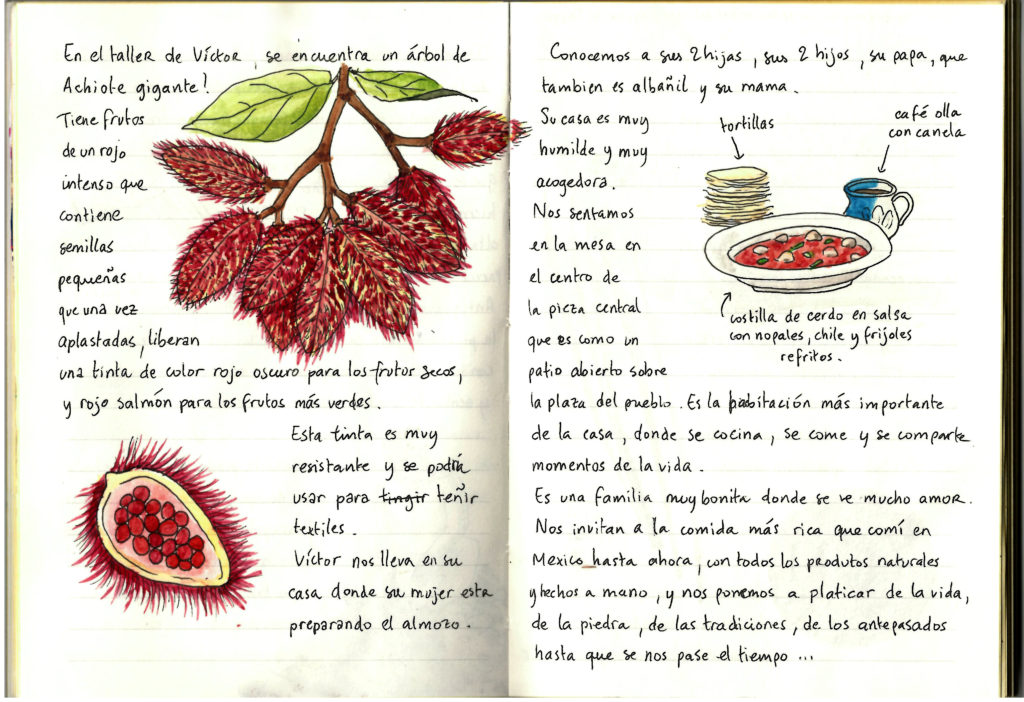 En el taller de Víctor, se encuentra un árbol de
Achiote gigante!
Tiene frutos
de un rojo
intenso que
contiene
semillas
pequeñas
que una vez
aplastadas, liberan
una tinta de color rojo oscuro para los frutos secos,
y rojo salmón para los frutos más verdes.
Esta tinta es muy
resistante y se podría
usar para tingir teñir
textiles.
Víctor nos lleva en su
casa donde su mujer esta
preparando el almozo.
Conocemos a sus 2 hijas, sus 2 hijos, su papa, que
tambien es albañil y su mama.
Su casa es muy
humilde y muy
acogedora.
Nos sentamos
en la mesa en
el centro de
la pieza central
que es como un
patio abierto sobre
la plaza del pueblo. Es la habitación más importante
de la casa, donde se cocina, se come y se comparte
momentos de la vida.
Es una familia muy bonita donde se ve mucho amor.
Nos invitan a la comida más rica que comí en
Mexico hasta ahora, con todos los produtos naturales
y hechos a mano, y nos ponemos a platicar de la vida,
de la piedra, de las tradiciones, de los antepasados
hasta que se nos pase el tiempo ...
tortillas
café olla
con canela
costilla de cerdo en salsa
con nopales, chile y frijoles
refritos.